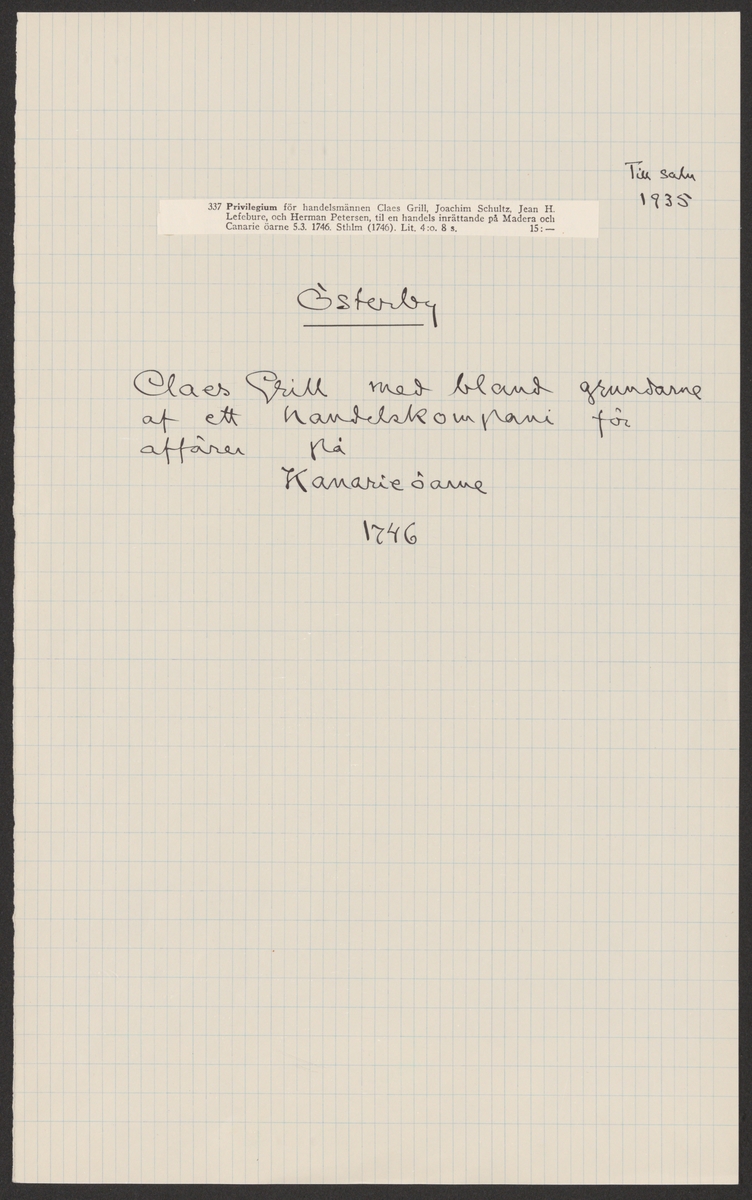 Till salu
1935
337 Privilegium för handelsmännen Claes Grill, Joachim Schultz, Jean H.
Lefebure, och Herman Petersen, til en handels inrättande på Madera och
Canarie öarne 5.3. 1746. Sthlm (1746). Lit. 4:o. 8 s. 15:—
Österby
Claes Grill med bland grundarne
af ett handelskompani för
affärer på
Kanarieöarne
1746